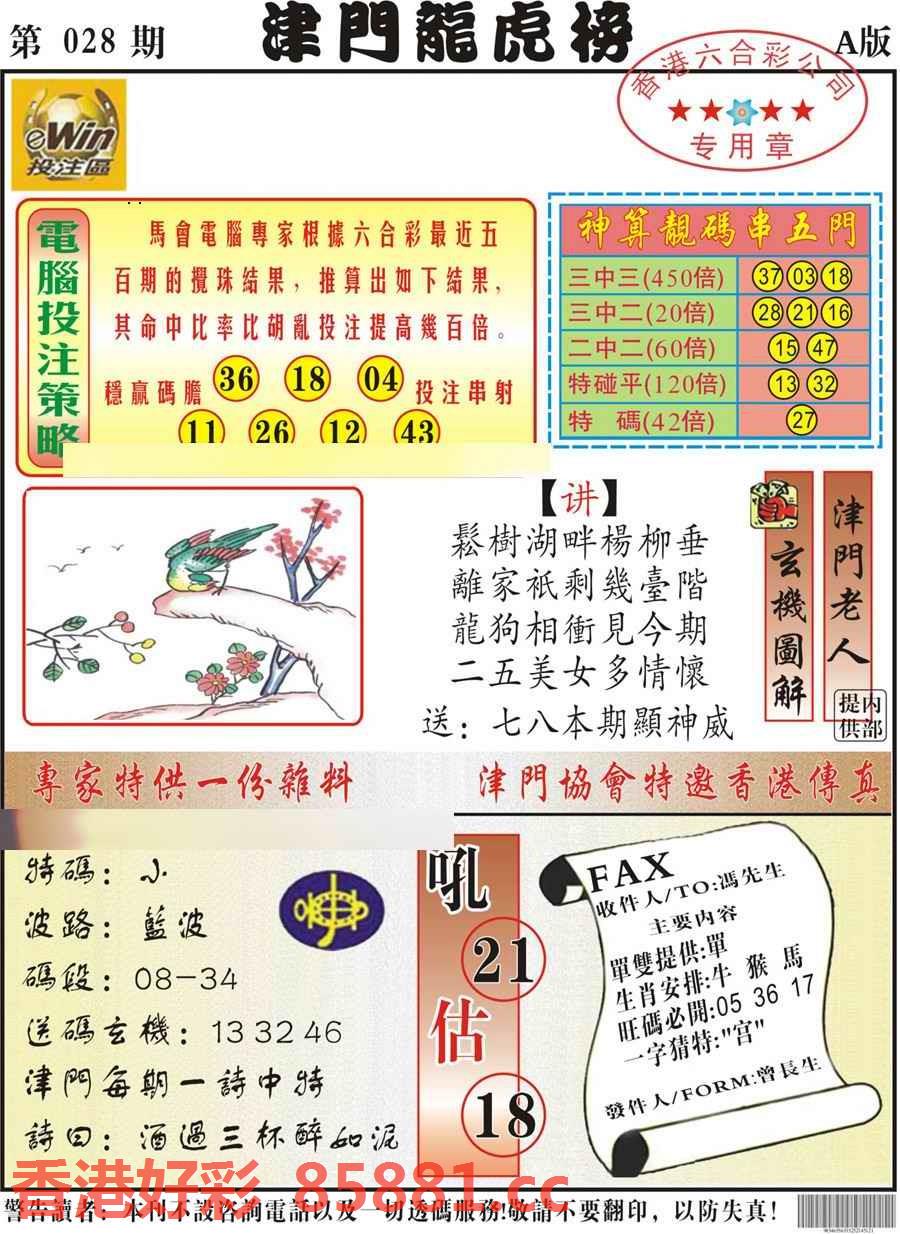 第 028 期
津門龍虎榜
A版
香港六合彩公司
专用章
eWin
投注區
電腦投注策略
馬會電腦專家根據六合彩最近五
百期的攪珠結果，推算出如下結果，
其命中比率比胡亂投注提高幾百倍。
穩贏碼膽 36 18 04 投注串射
11 26 12 43
神算靚碼串五門
三中三(450倍) 37 03 18
三中二(20倍) 28 21 16
二中二(60倍) 15 47
特碰平(120倍) 13 32
特 碼(42倍) 27
【讲】
鬆樹湖畔楊柳垂
離家衹剩幾臺階
龍狗相衝見今期
二五美女多情懷
送：七八本期顯神威
玄機圖解
津門老人
内部提供
專家特供一份雜料
津門協會特邀香港傳真
特碼：小
波路：藍波
碼段：08-34
送碼玄機：13 32 46
津門每期一詩中特
詩曰：酒過三杯醉如泥
吼
21
估
18
FAX
收件人/TO:馮先生
主要内容
單雙提供:單
生肖安排:牛 猴 馬
旺碼必開:05 36 17
一字猜特:"宫"
發件人/FORM:曾長生
香港好彩 85881.cc
警告讀者：本刊不設咨詢電話以及一切透碼服務!敬請不要翻印，以防失真!